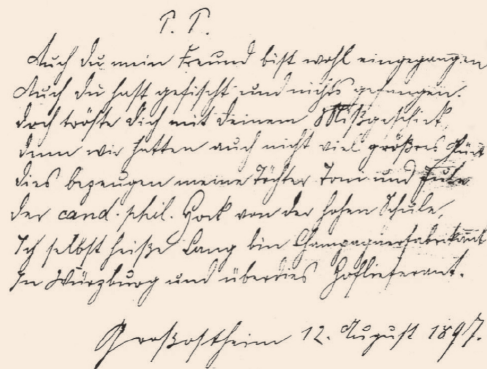 P. P.
Auch du mein Freund bist wohl eingegangen
Auch du hast gefischt und nichts gefangen.
doch tröste dich mit deinem Mißgeschick,
denn wir hatten auch nicht viel größres Glück
dies bezeugen meine Töchter Toni und
der cand. phil. Hock von der hohen Schule,
Ich selbst heiße Lang bin Champagnerfabrikant
In Würzburg und überdies Hoflieferant.
Großostheim 12. August 1897.